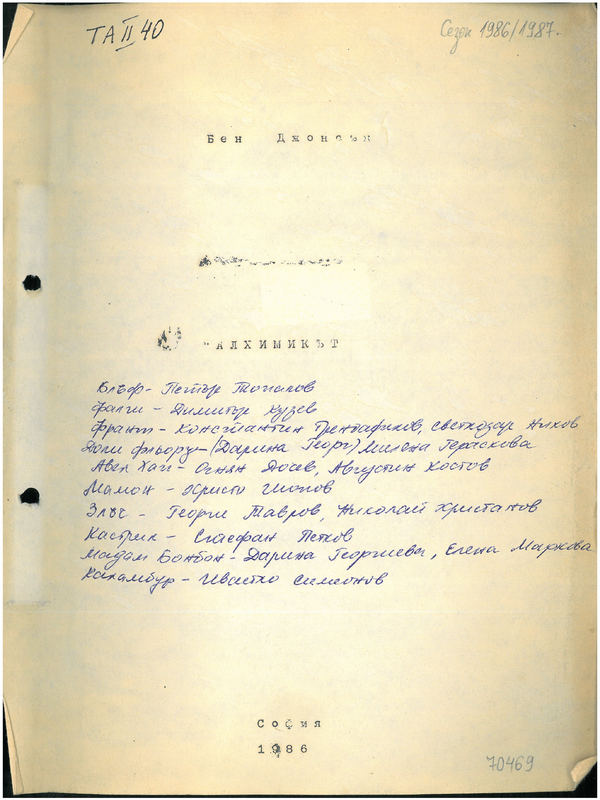 ТА II 40
Сезон 1986/1987.
Бен Джонсън
"АЛХИМИКЪТ
Блъф - Петър Топалов
Фалги - Димитър Хузев
Франт - Константин Трендафилов, Светлозар Нихов
Доли Фльору - (Дарина Георг) Милена Гераскова
Авел Хап - Огнян Досев, Августин Костов
Мамон - Христо Попов
Злъч - Георги Мавров, Николай Христанов
Кастрил - Стефан Петков
Мадам Бонбон - Дарина Георгиева, Елена Маркова
Каламбур - Ивайло Симеонов
София
1986
70469